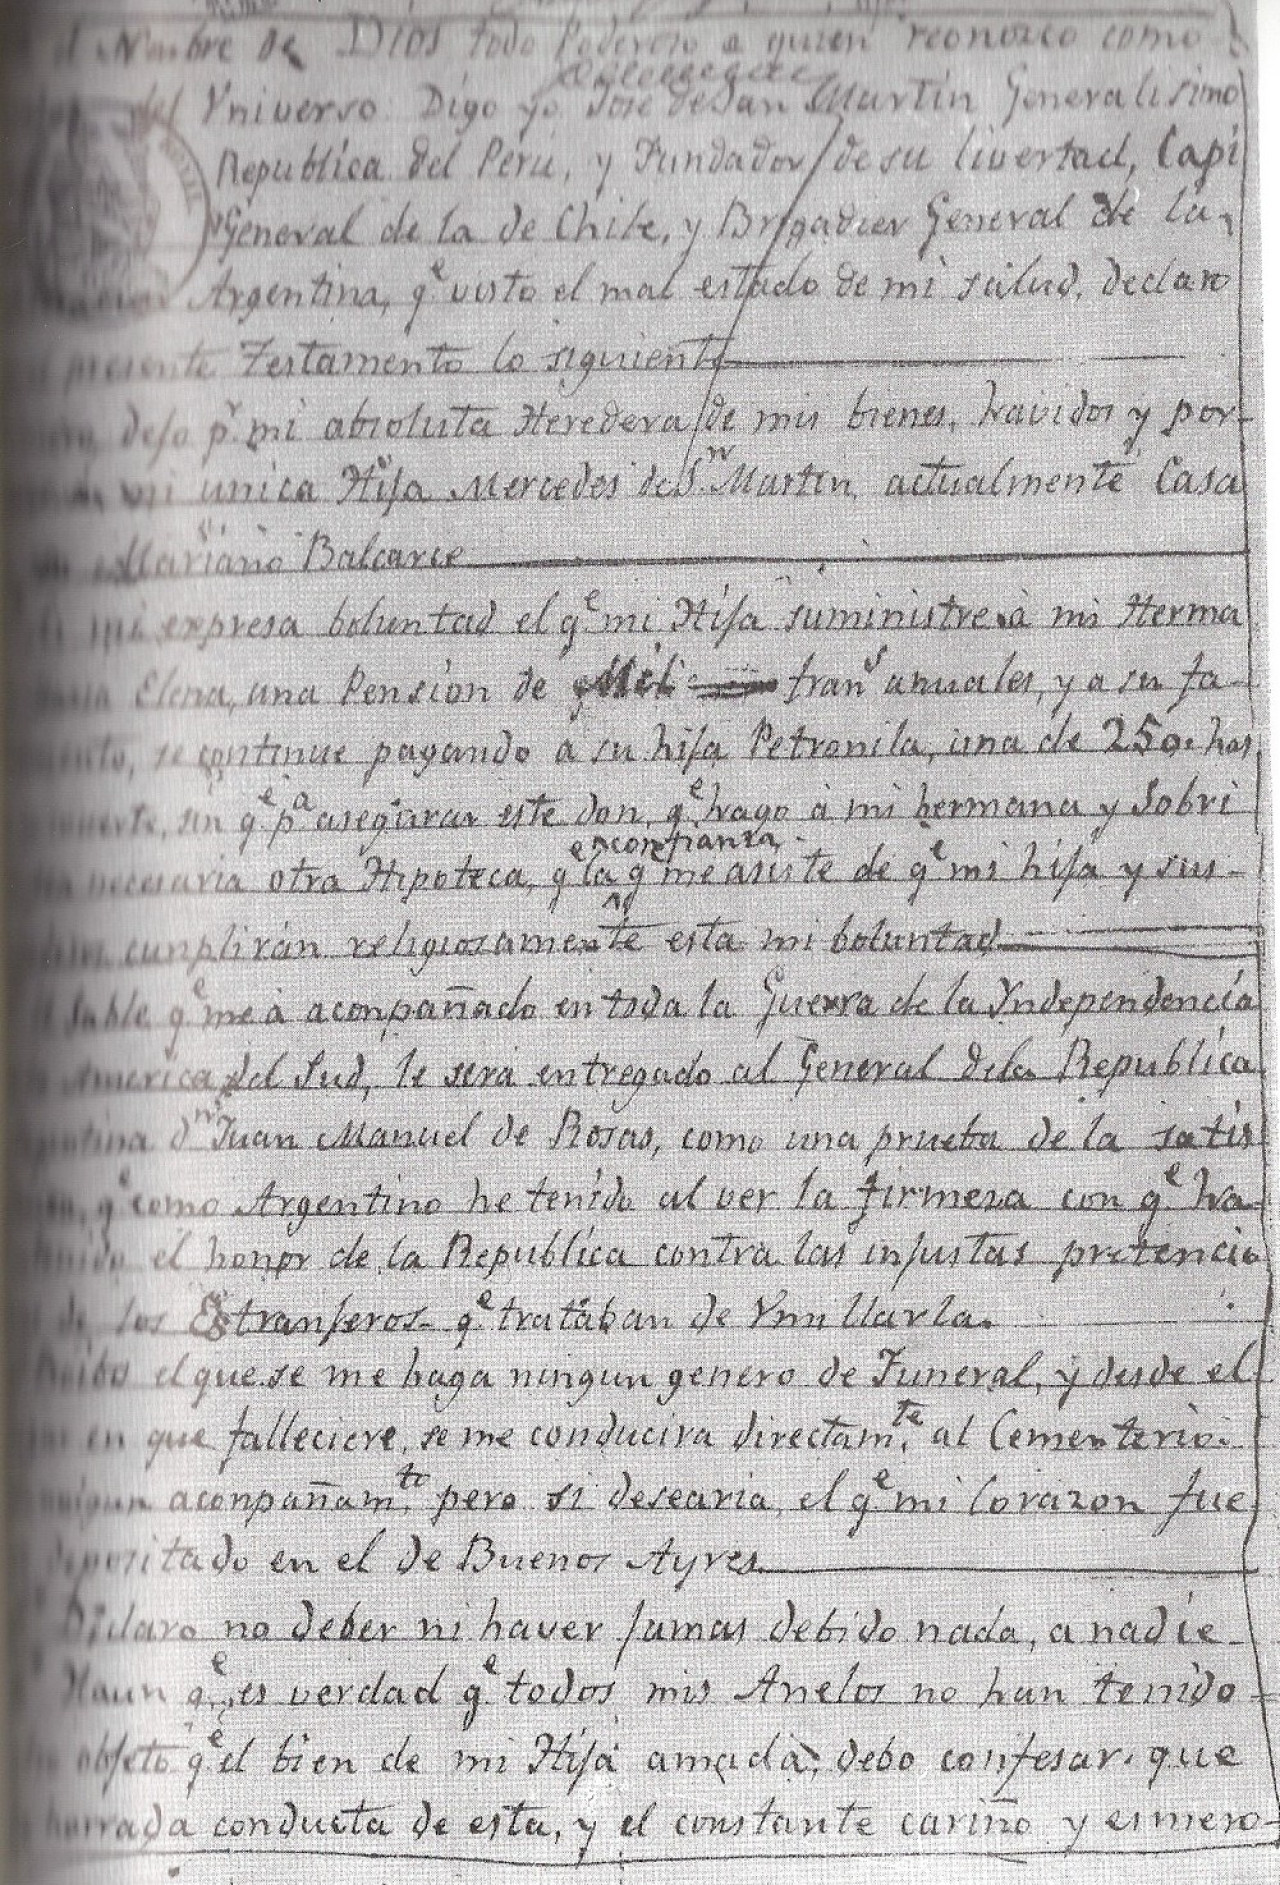 el Nombre de Dios todo Poderoso a quien reconozco como
del Yniverso: Digo yo José de San Martin Generalisimo
Republica del Peru, y Fundador de su livertad, Capi
General de la de Chile, y Brigadier General de la
Argentina, qe visto el mal estado de mi salud, declaro
el presente Testamento lo siguiente
dejo pr mi absoluta Heredera de mis bienes, havidos y por-
mi unica Hija Mercedes de Sn Martin actualmente Casa
Mariano Balcarce
mi expresa boluntad el qe mi Hija suministre à mi Herma
Elena, una Pension de Mil frans anuales, y a su fa-
se continue pagando a su hija Petronila, una de 250. has
muerte, sin qe pa asegurar este don qe hago à mi hermana y Sobri
necesaria otra Hipoteca, q la
confianza
q me asiste de qe mi hija y sus-
cunplirán religiosamente esta mi boluntad
sable qe me à aconpañado en toda la Guerra de la Yndependencia
America del Sud, le será entregado al General de la Republica
dn Juan Manuel de Rosas, como una prueba de la satis
qe como Argentino he tenido al ver la firmeza con qe ha-
el honor de la Republica contra las injustas pretencio
de los Estranjeros qe trataban de Ymillarla.
el que se me haga ningun genero de Funeral, y desde el
en que falleciere, se me conducira directamte al Cementerio
ningun aconpañamto pero si desearia, el qe mi Corazon fue
depositado en el de Buenos Ayres
Declaro no deber ni haver jamas debido nada, a nadie-
Haun qe es verdad qe todos mis Anelos no han tenido-
objeto qe el bien de mi Hija amada, debo confesar que
honrrada conducta de esta, y el constante cariño y esmero-